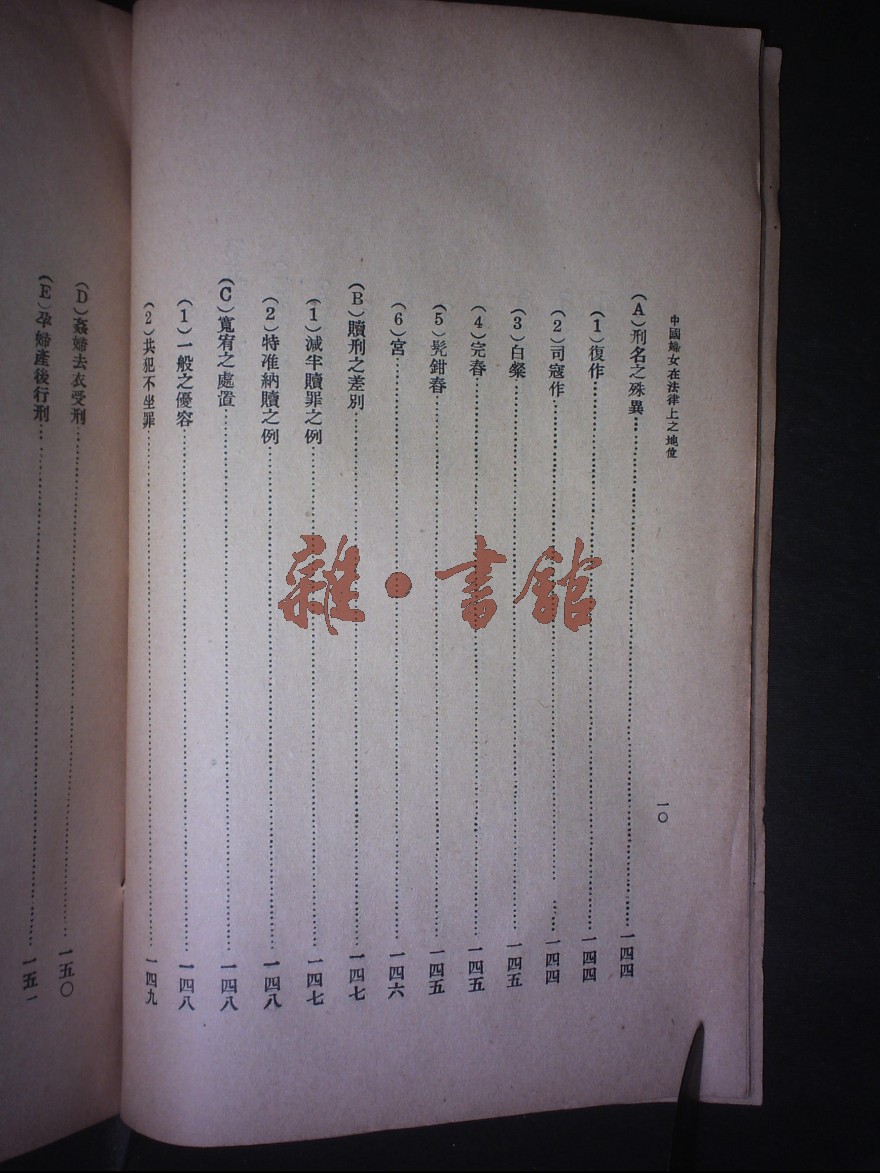 中國婦女在法律上之地位
一〇
(A)刑名之殊異……一四四
(1)復作……一四四
(2)司寇作……一四四
(3)白粲……一四五
(4)完舂……一四五
(5)髡鉗舂……一四五
(6)宮……一四六
(B)贖刑之差別……一四七
(1)減半贖罪之例……一四七
(2)特准納贖之例……一四八
(C)寬宥之處置……一四八
(1)一般之優容……一四八
(2)共犯不坐罪……一四九
(D)姦婦去衣受刑……一五〇
(E)孕婦產後行刑……一五一
雜·書館